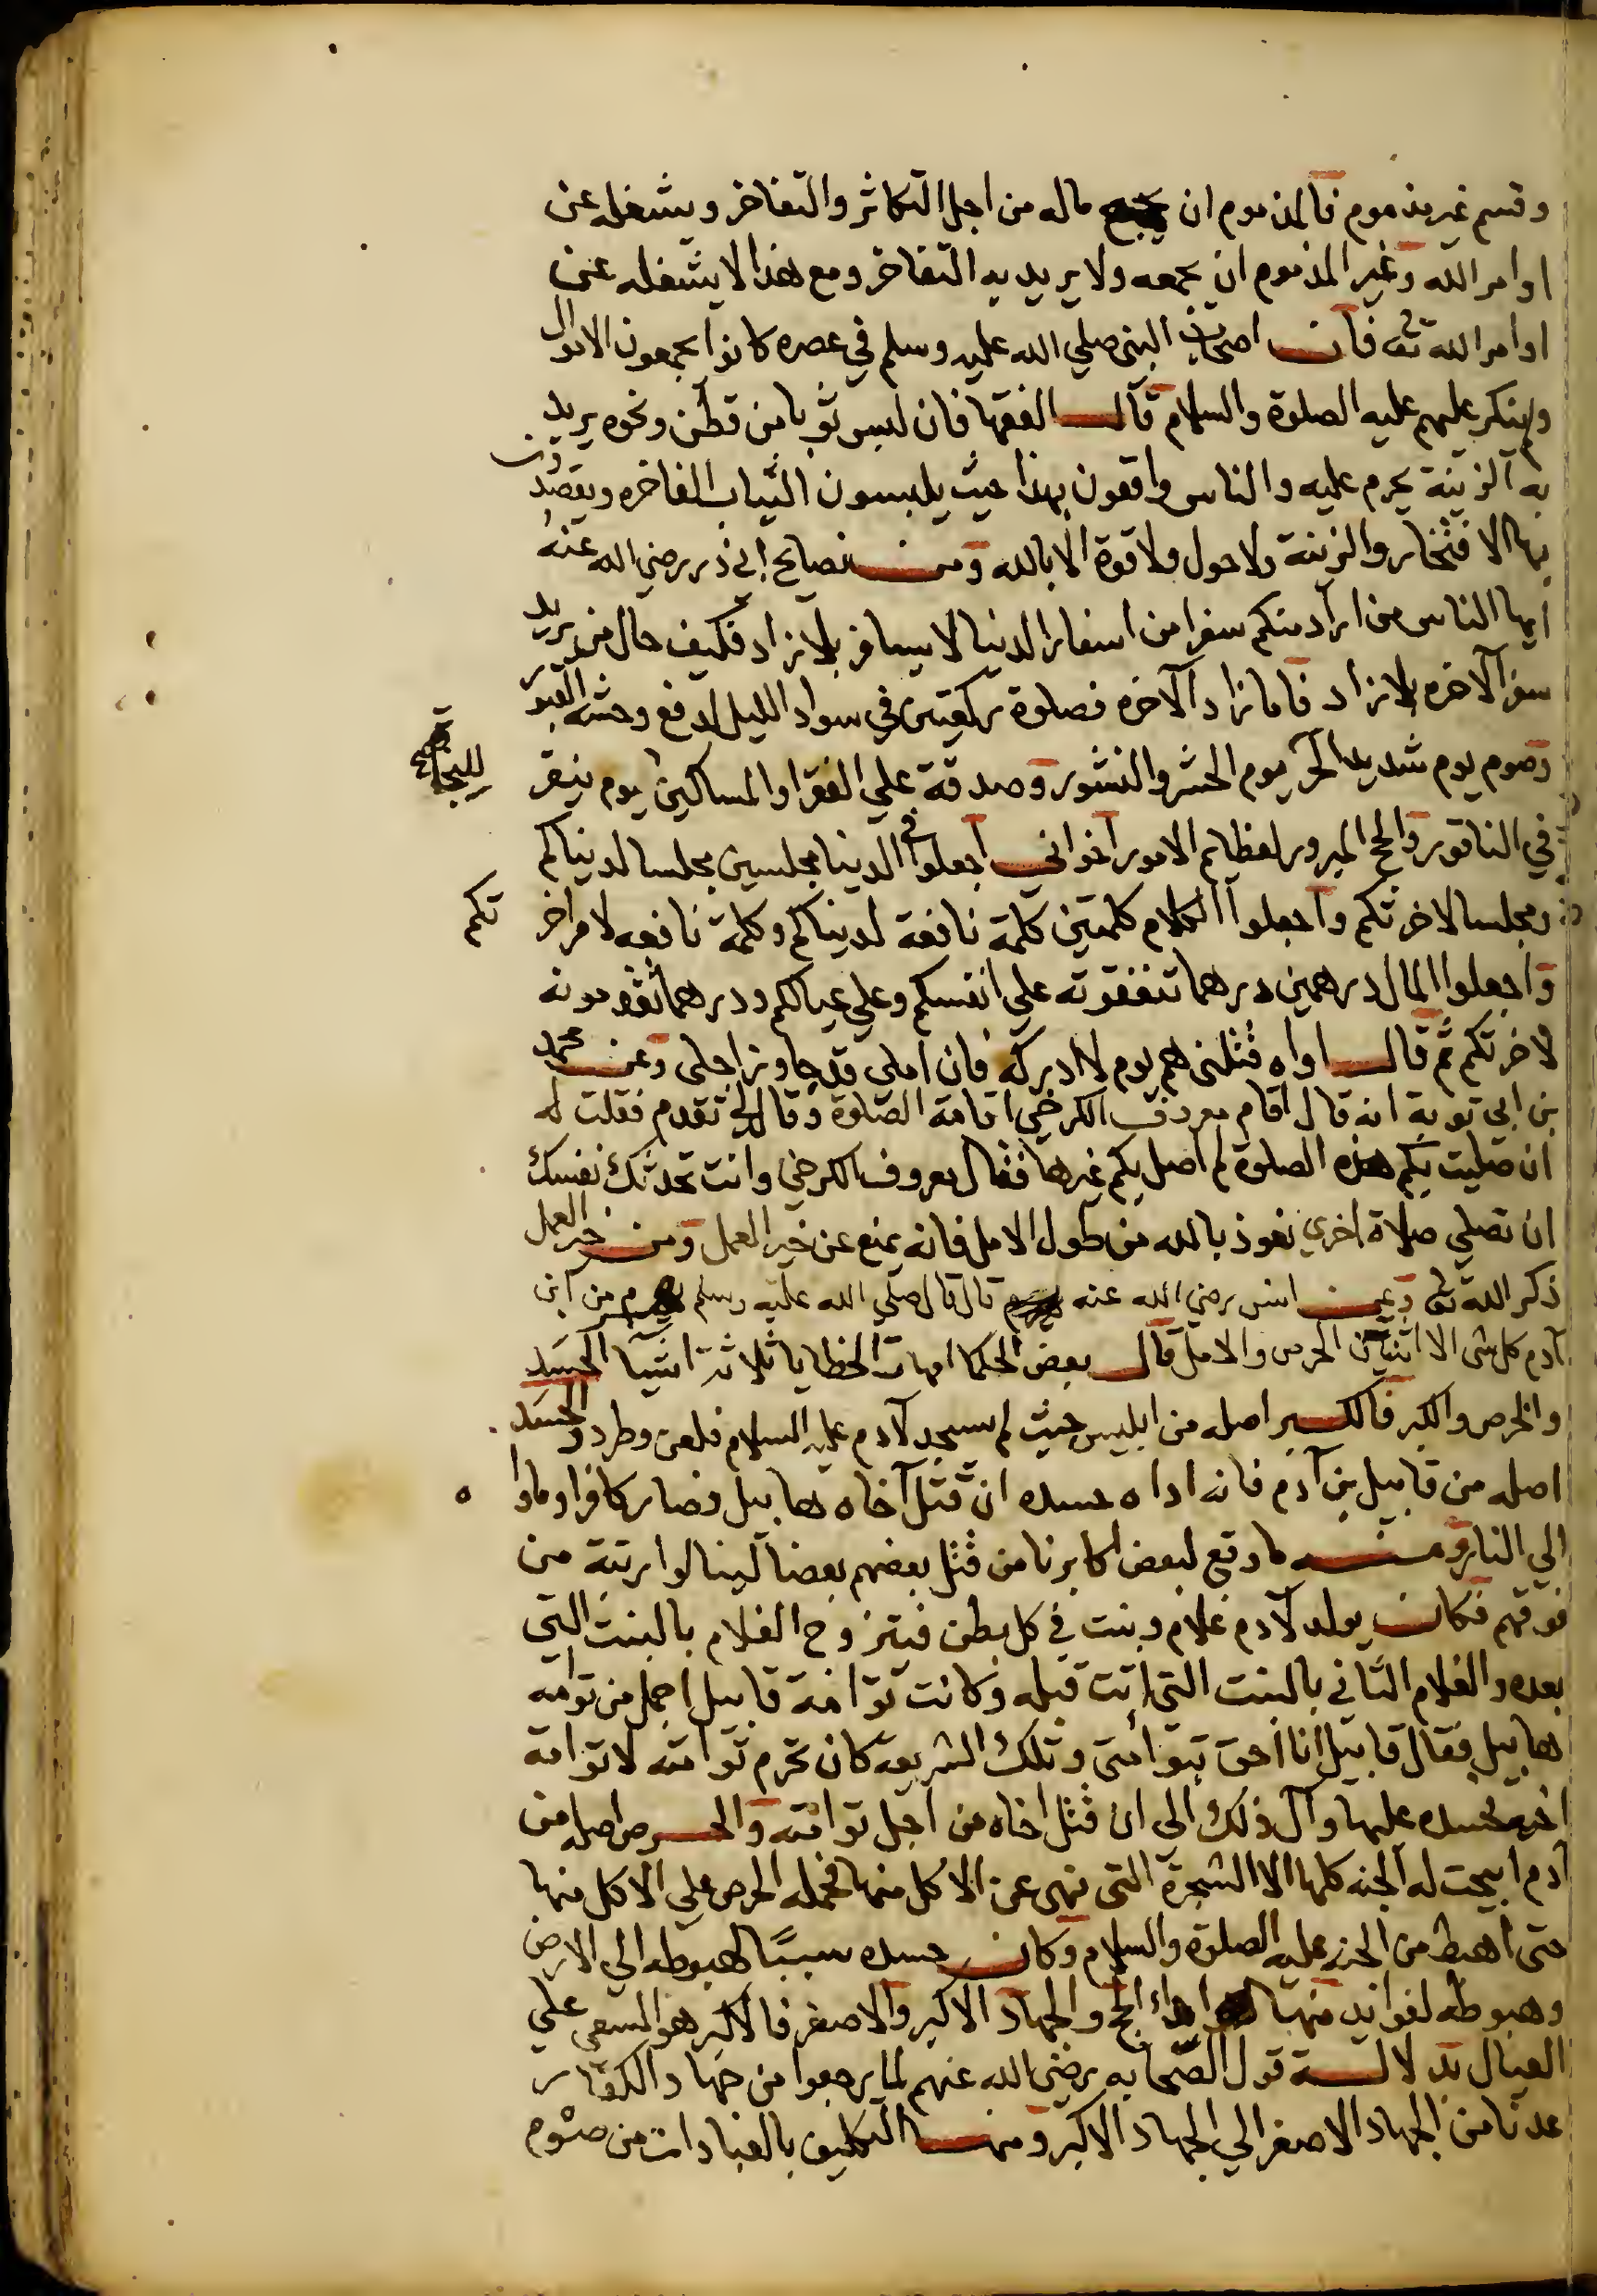 وقسم غير مذموم فالمذموم ان يجمع ماله من اجل التكاثر والتفاخر ويشغله عن
اوامر الله وغير المذموم ان يجمعه ولا يريد به التفاخر ومع هذا لا يشغله عن
اوامر الله تع فان اصحاب النبي صلي الله عليه وسلم في عصره كانوا يجمعون الاموال
ولم ينكر عليهم عليه الصلوة والسلام قال الفقها فان لبس ثوبا من قطن ونحوه يريد
به الزينة يحرم عليه والناس واقعون بهذا حيث يلبسون الثياب الفاخره ويقصدون
بها الافتخار والزينة ولا حول ولا قوة الا بالله ومن نصايح ابي ذر رضي الله عنه
ايها الناس من اراد منكم سفرا من اسفار الدنيا لا يسافر بلا زاد فكيف حال من يريد
سفر الآخره بلا زاد فاما زاد الآخره فصلوة ركعتين في سواد الليل لدفع وحشة القبور
وصوم يوم شديد الحر ليوم الحشر والنشور وصدقة علي الفقرا والمساكين يوم ينقر
في الناقور والحج المبرور لعظايم الامور اخواني اجعلوا في الدنيا مجلسين مجلسا لدنياكم
ومجلسا لاخرتكم واجعلوا الكلام كلمتين كلمة نافعة لدنياكم وكلمة نافعه لامر اخر تكم
واجعلوا المال درهمين درهما تنفقونه علي انفسكم وعلي عيالكم ودرهما تقدمونه
لاخرتكم ثم قال اواه قتلني هم يوم لا ادركه فان املي قد جاوز اجلي وعن محمد
بن ابي توبة انه قال اقام معروف الكرخي اقامة الصلوة وقال لي تقدم فقلت له
ان صليت بكم هذه الصلوة لم اصل بكم غيرها فقال معروف الكرخي وانت تحدثك نفسك
ان تصلي صلاة اخري نعوذ بالله من طول الامل فانه يمنع عن خير العمل ومن خير العمل
ذكر الله تع وعن انس رضي الله عنه قال قال صلي الله عليه وسلم يهرم من ابن
آدم كل شي الا اثنين الحرص والامل قال بعض الحكما امهات الخطايا ثلاثة اشيا الحسد
والحرص والكبر فالكبر اصله من ابليس حيث لم يسجد لآدم عليه السلام فلعن وطرد والحسد
اصله من قابيل بن آدم فانه اداه حسده ان قتل آخاه هابيل فصار كافرا وماوا ه
الي النار ومنه ما وقع لبعض اكابرنا من قتل بعضهم بعضا لينالوا رتبة من
فوقهم فكان يولد لآدم غلام وبنت في كل بطن فيتزوج الغلام بالبنت التي
بعده والغلام الثاني بالبنت التي اتت قبله وكانت توامة قابيل اجمل من توامه
هابيل فقال قابيل انا احق بتوامتي وتلك الشريعة كان تحرم توامته لا توامة
اخيه لحسده عليها وآل ذلك الي ان قتل اخاه من اجل توامته والحرص اصله من
آدم ابيحت له الجنه كلها الا الشجرة التي نهي عن الاكل منها فحمله الحرص علي الاكل منها
حتى اهبط من الجنه عليه الصلوة والسلام وكان حسده سببًا لهبوطه الي الارض
وهبوطه لفوايد منها اداء الحج والجهاد الاكبر والاصغر فالاكبر هو السعي علي
العيال بدلالة قول الصحابه رضي الله عنهم لما رجعوا من جهاد الكفار
عدنا من الجهاد الاصغر الي الجهاد الاكبر ومنها التكليف بالعبادات من صوم